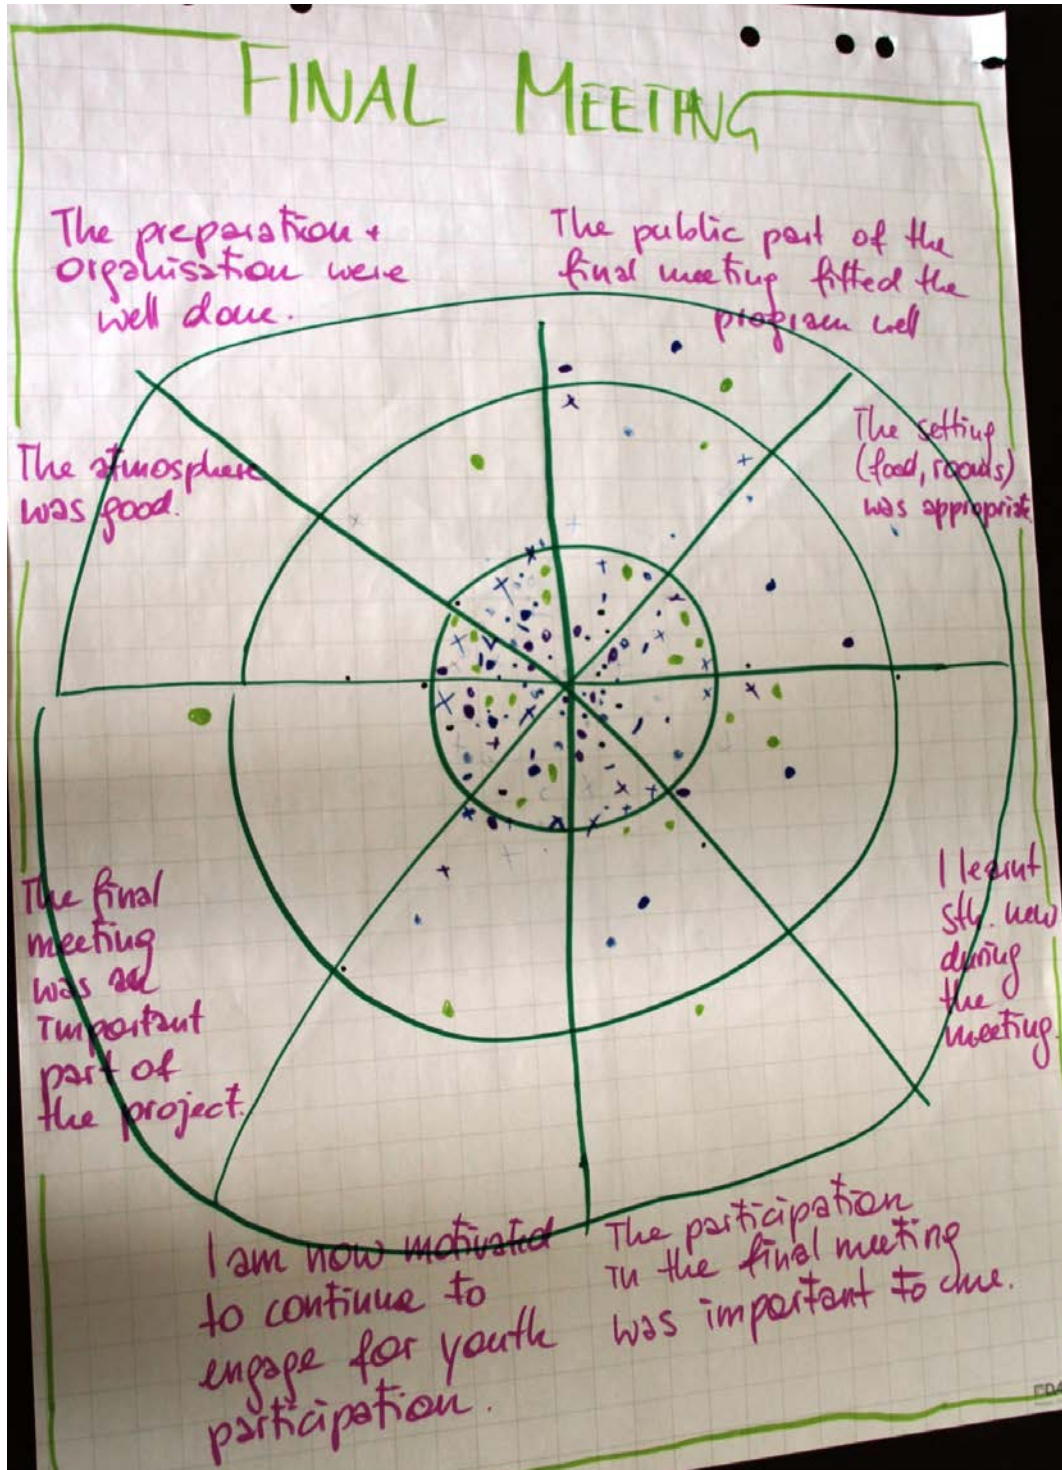 FINAL MEETING
The preparation +
organisation were
well done.
The public part of the
final meeting fitted the
program well
The atmosphere
was good.
The setting
(food, rooms)
was appropriate
The final
meeting
was an
important
part of
the project.
I learnt
sth. new
during
the
meeting.
I am now motivated
to continue to
engage for youth
participation.
The participation
in the final meeting
was important to me.